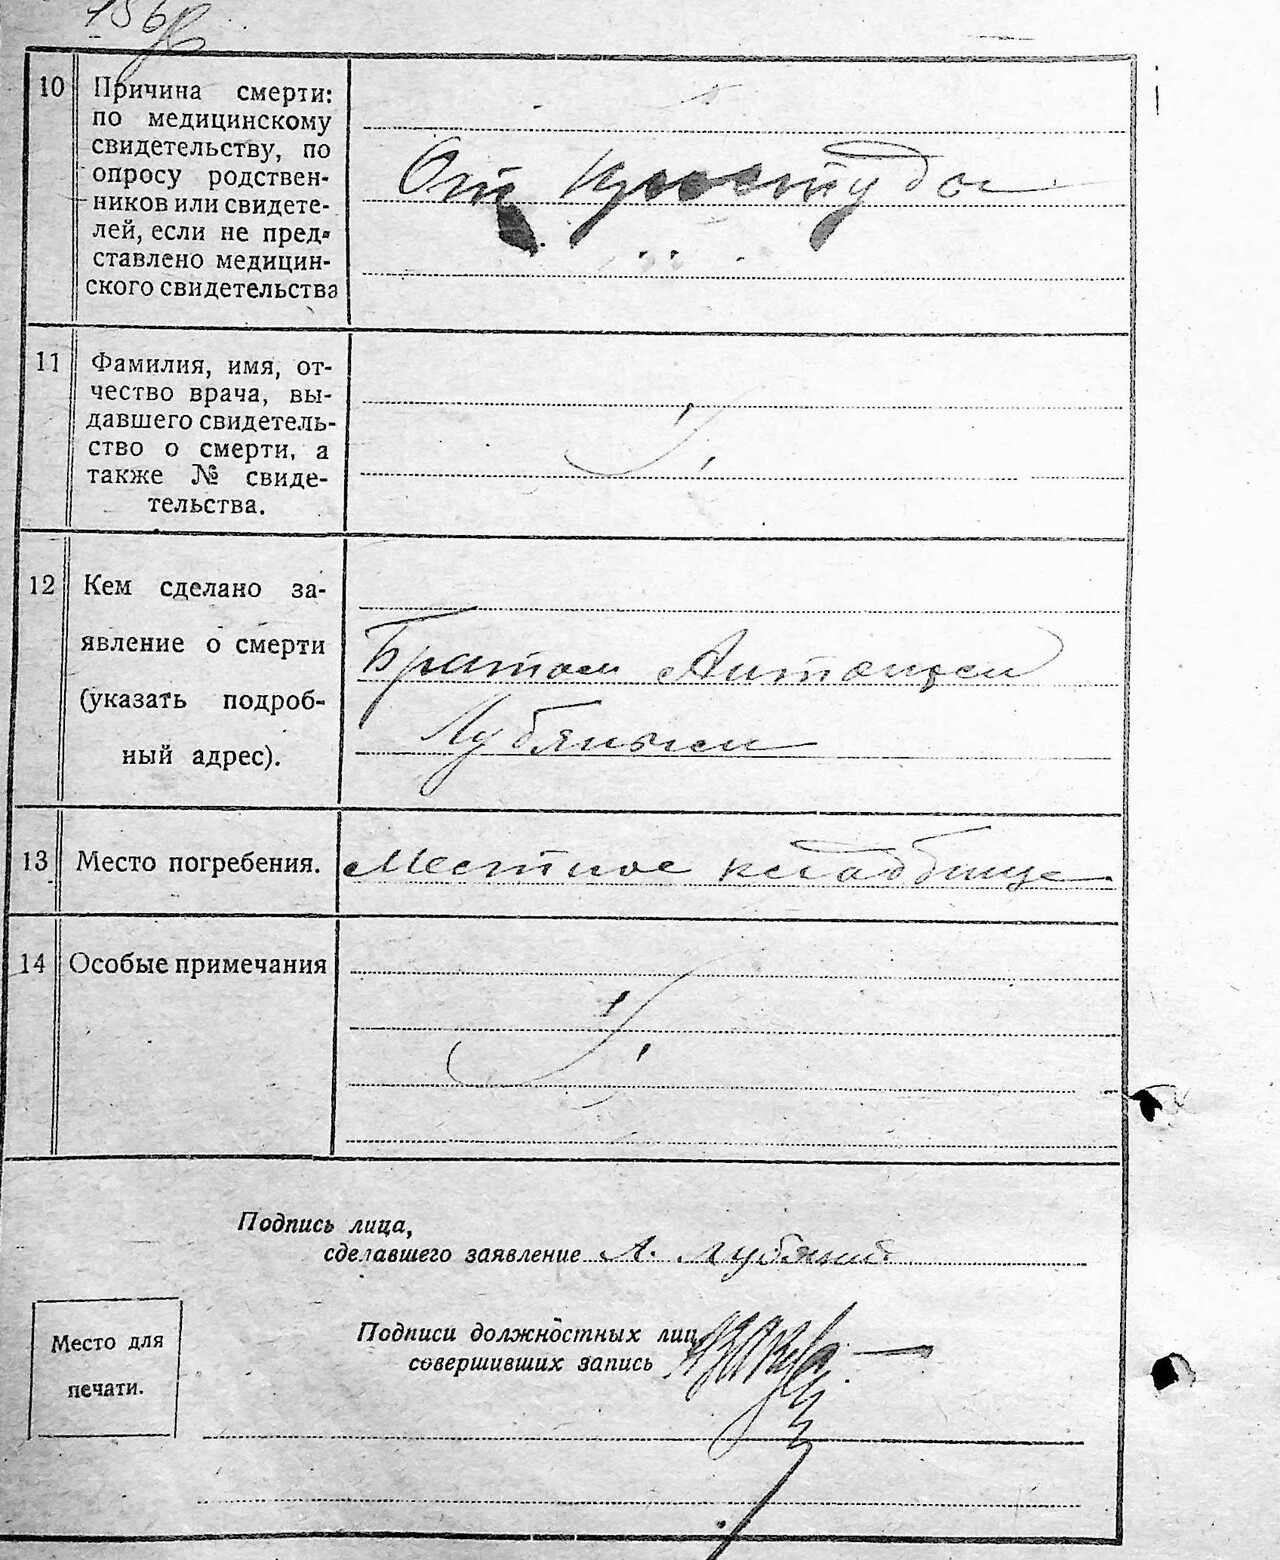 156
10 Причина смерти:
по медицинскому
свидетельству, по
опросу родствен-
ников или свидете-
лей, если не пред-
ставлено медицин-
ского свидетельства
От простуды
11 Фамилия, имя, от-
чество врача, вы-
давшего свидетель-
ство о смерти, а
также № свиде-
тельства.
12 Кем сделано за-
явление о смерти
(указать подроб-
ный адрес).
Братом Антоном
Лубяным
13 Место погребения. Местное кладбище
14 Особые примечания
Подпись лица,
сделавшего заявление А. Лубяный
Подписи должностных лиц,
совершивших запись
Место для
печати.